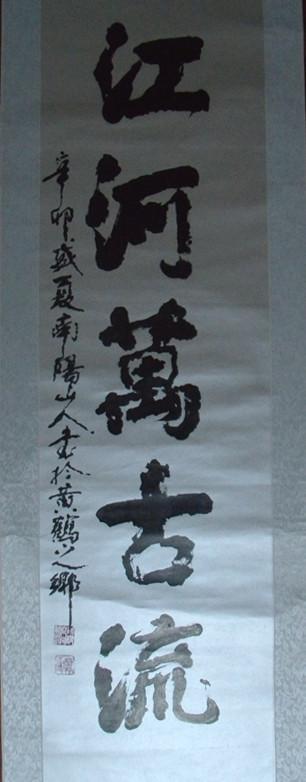 江河萬古流
辛卯盛夏南陽山人書於黄鶴之鄉